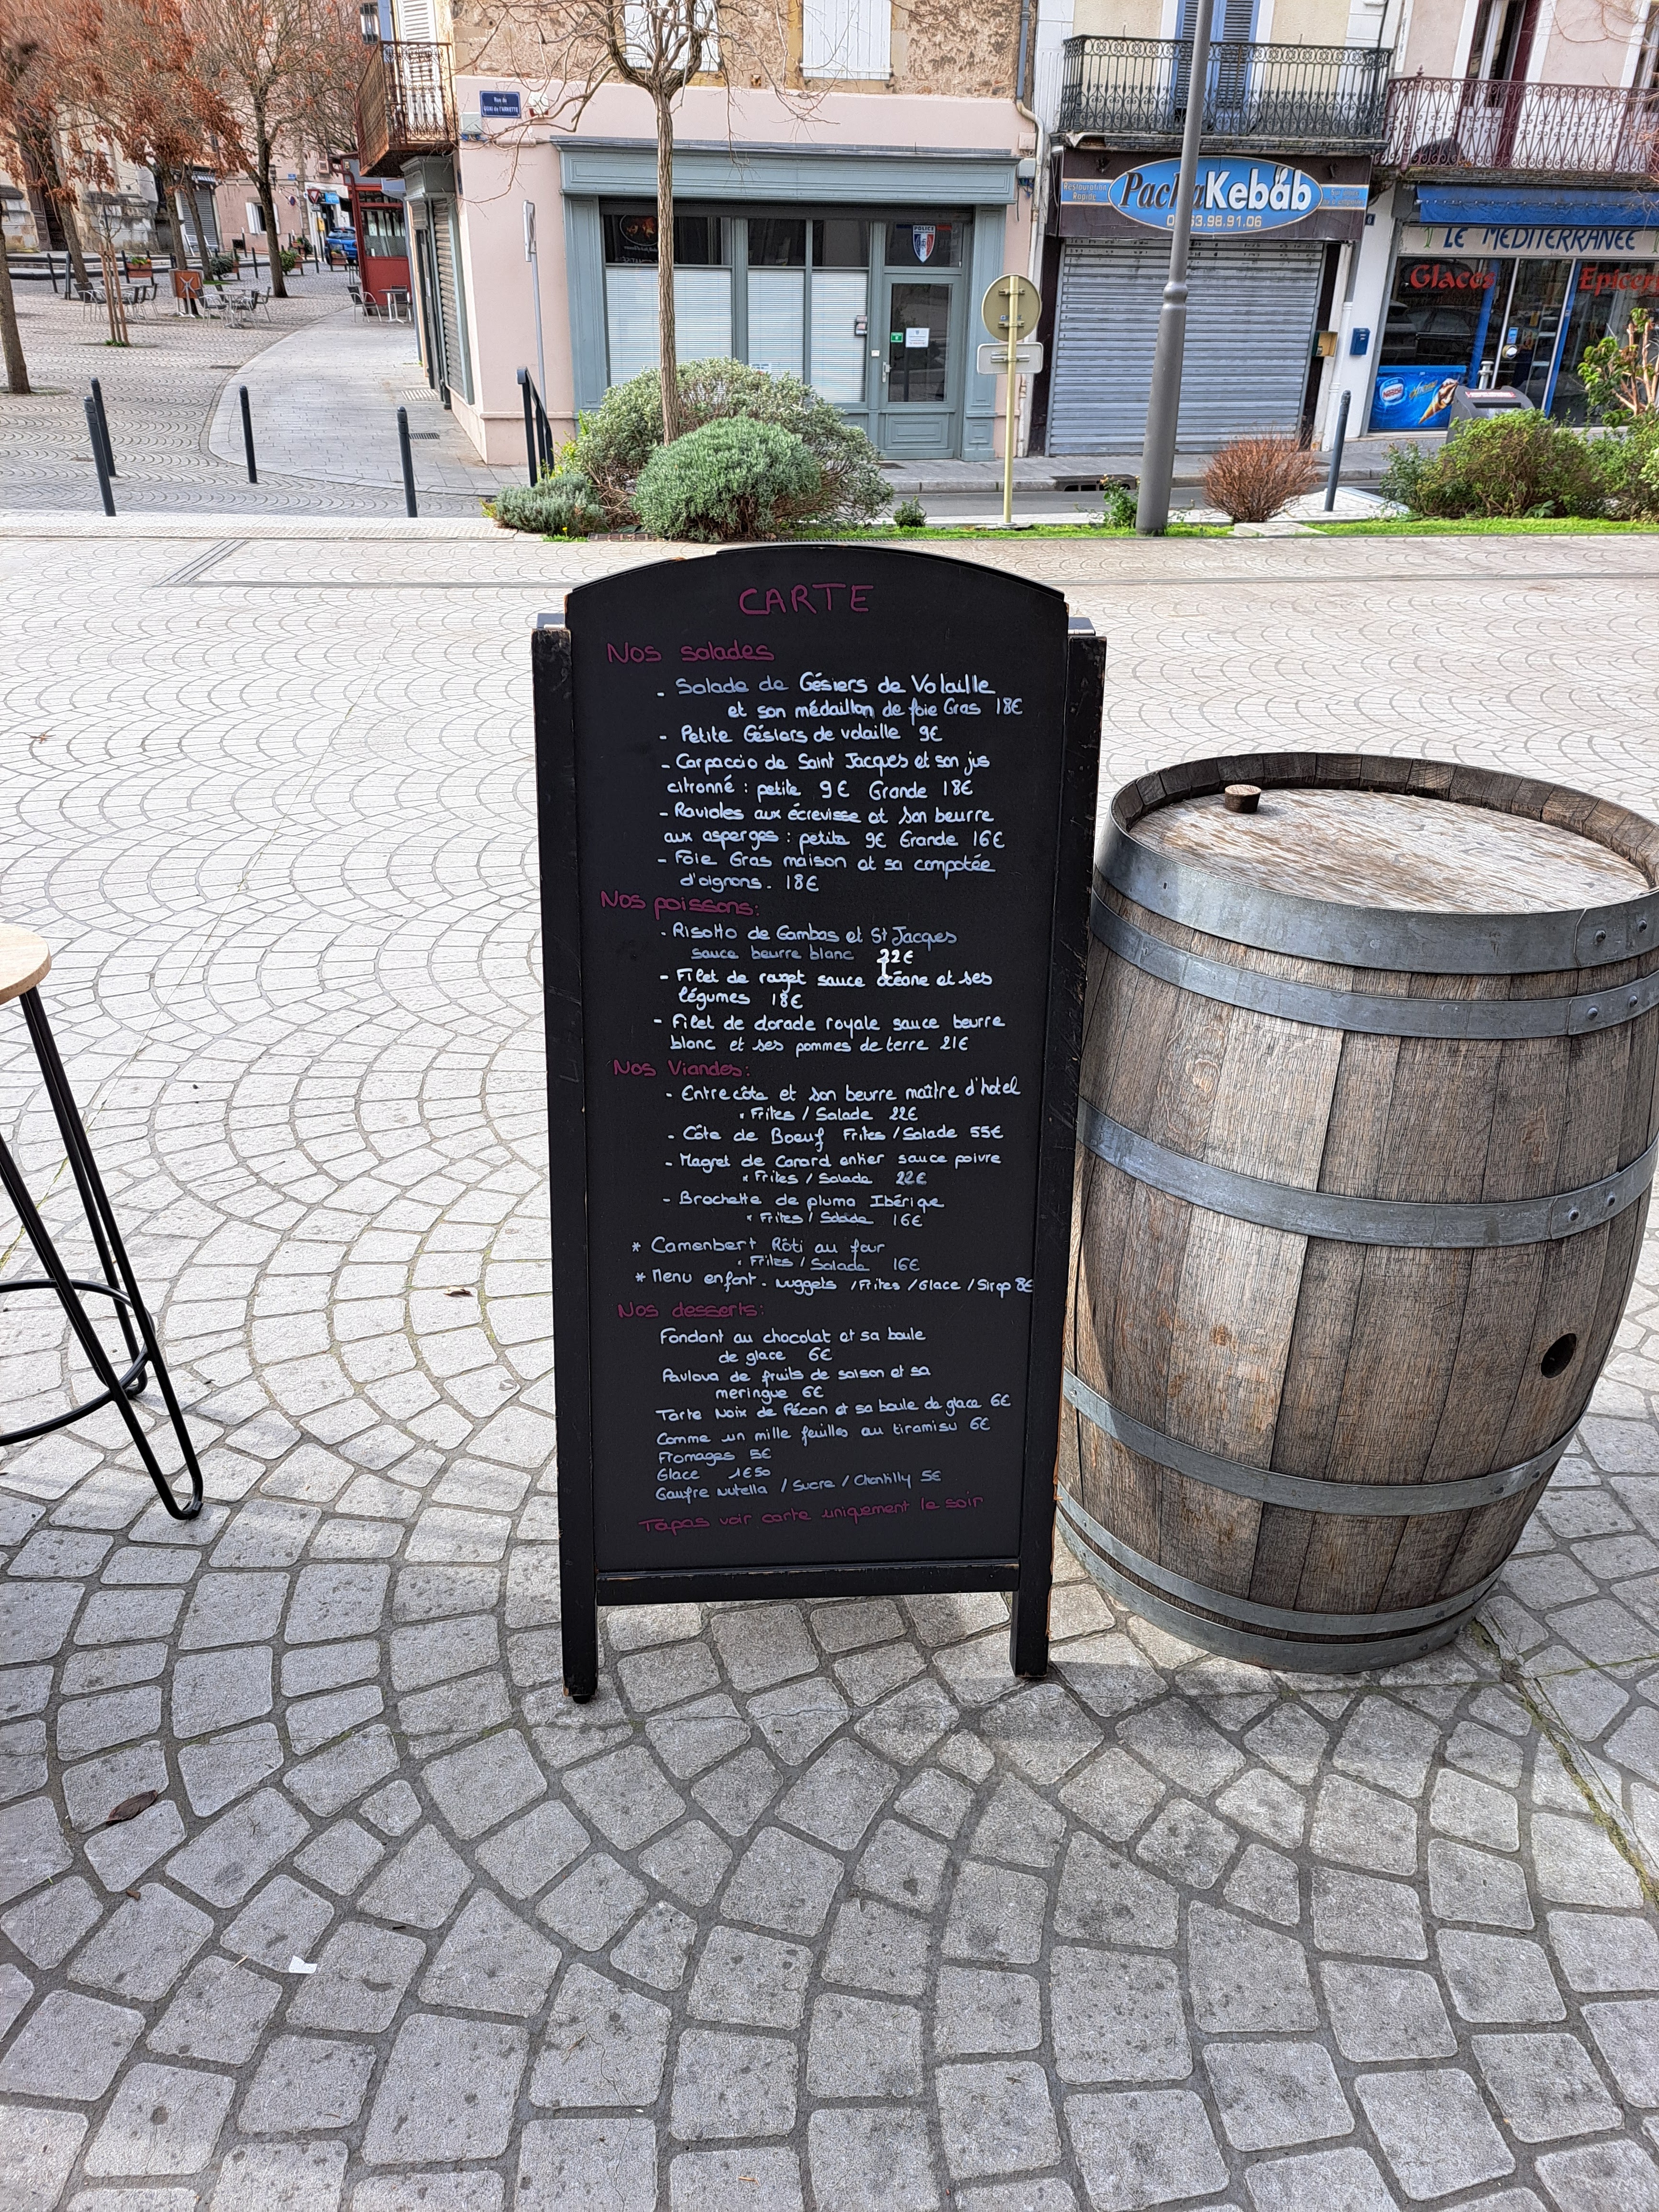 Rue du
QUAI de l'ARNETTE
POLICE
Restauration
Rapide
PachaKebab
63.98.91.06
LE MEDITERRANEE
Glaces
Epicerie
Nestlé
CARTE
Nos salades
- Salade de Gésiers de Volaille
et son médaillon de foie Gras 18€
- Petite Gésiers de volaille 9€
- Carpaccio de Saint Jacques et son jus
citronné : petite 9€ Grande 18€
- Ravioles aux écrevisse et son beurre
aux asperges : petite 9€ Grande 16€
- Foie Gras maison et sa compotée
d'oignons. 18€
Nos poissons:
- Risotto de Gambas et St Jacques
sauce beurre blanc 22€
- Filet de rouget sauce océane et ses
légumes 18€
- Filet de dorade royale sauce beurre
blanc et ses pommes de terre 21€
Nos Viandes:
- Entrecôte et son beurre maître d'hotel
• Frites / Salade 22€
- Côte de Boeuf Frites / Salade 55€
- Magret de Canard entier sauce poivre
• Frites / Salade 22€
- Brochette de pluma Ibérique
• Frites / Salade 16€
* Camenbert Rôti au four
• Frites / Salade 16€
* Menu enfant - Nuggets / Frites / Glace / Sirop 8€
Nos desserts:
Fondant au chocolat et sa boule
de glace 6€
Pavlova de fruits de saison et sa
meringue 6€
Tarte Noix de Pécan et sa boule de glace 6€
Comme un mille feuilles au tiramisu 6€
Fromages 5€
Glace 1€50
Gaufre Nutella / Sucre / Chantilly 5€
Tapas voir carte uniquement le soir